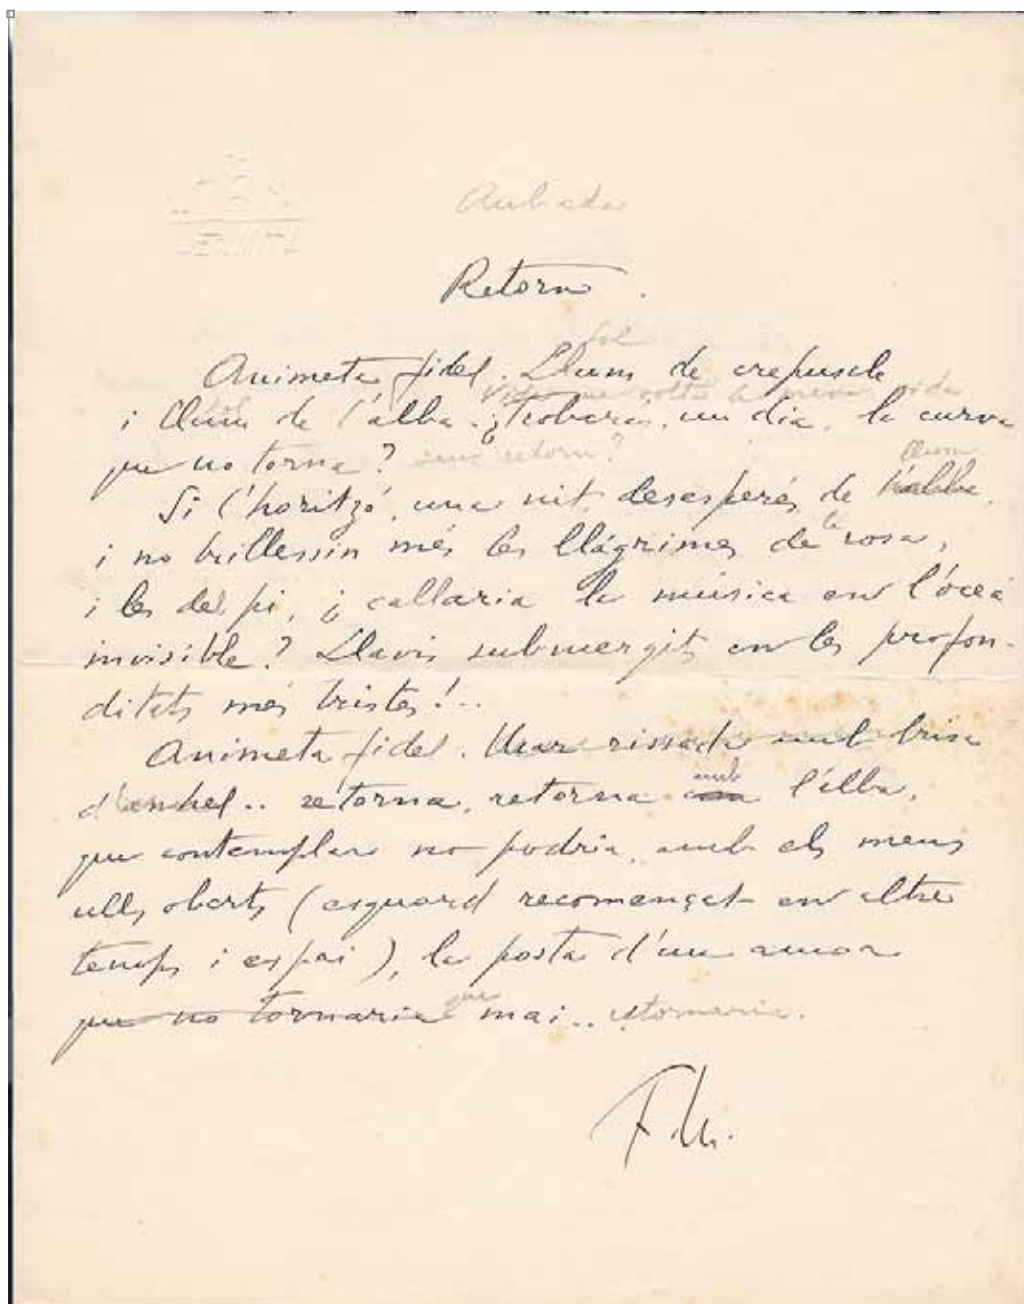 Aubada
Retorn.
Sol
Animeta fidel. Llum de crepuscle
volta la meva vida
i llum de l'alba. ¿Trobaràs, un dia, la curva
que no torna? sens retorn?
llum
Si l'horitzó, una nit, desesperés de l'alba,
i no brillessin més les llágrimes de la rosa,
i les del pi, ¿callaria la música en l'oceà
invisible? Llavis submergits en les profon-
ditats més tristes!..
Animeta fidel. Mar rissada amb brisa
d'anhel.. retorna, retorna amb l'alba,
que contemplar no podria, amb els meus
ulls oberts (esguard recomençat en altre
temps i espai), la posta d'un amor
que no tornaria que mai.. retornaria.
F. M.